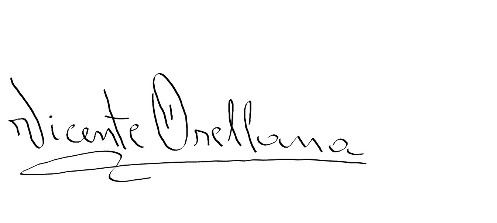 Vicente Orellana